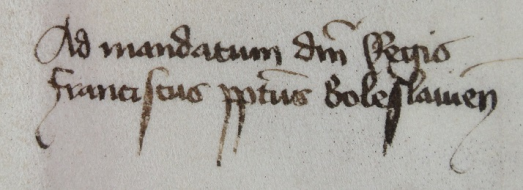 Ad mandatum dni Regis
Franciscus ppts Boleslauien